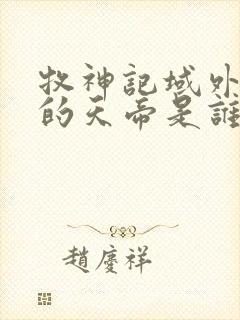 牧神記域外
的天帝是誰
趙慶祥